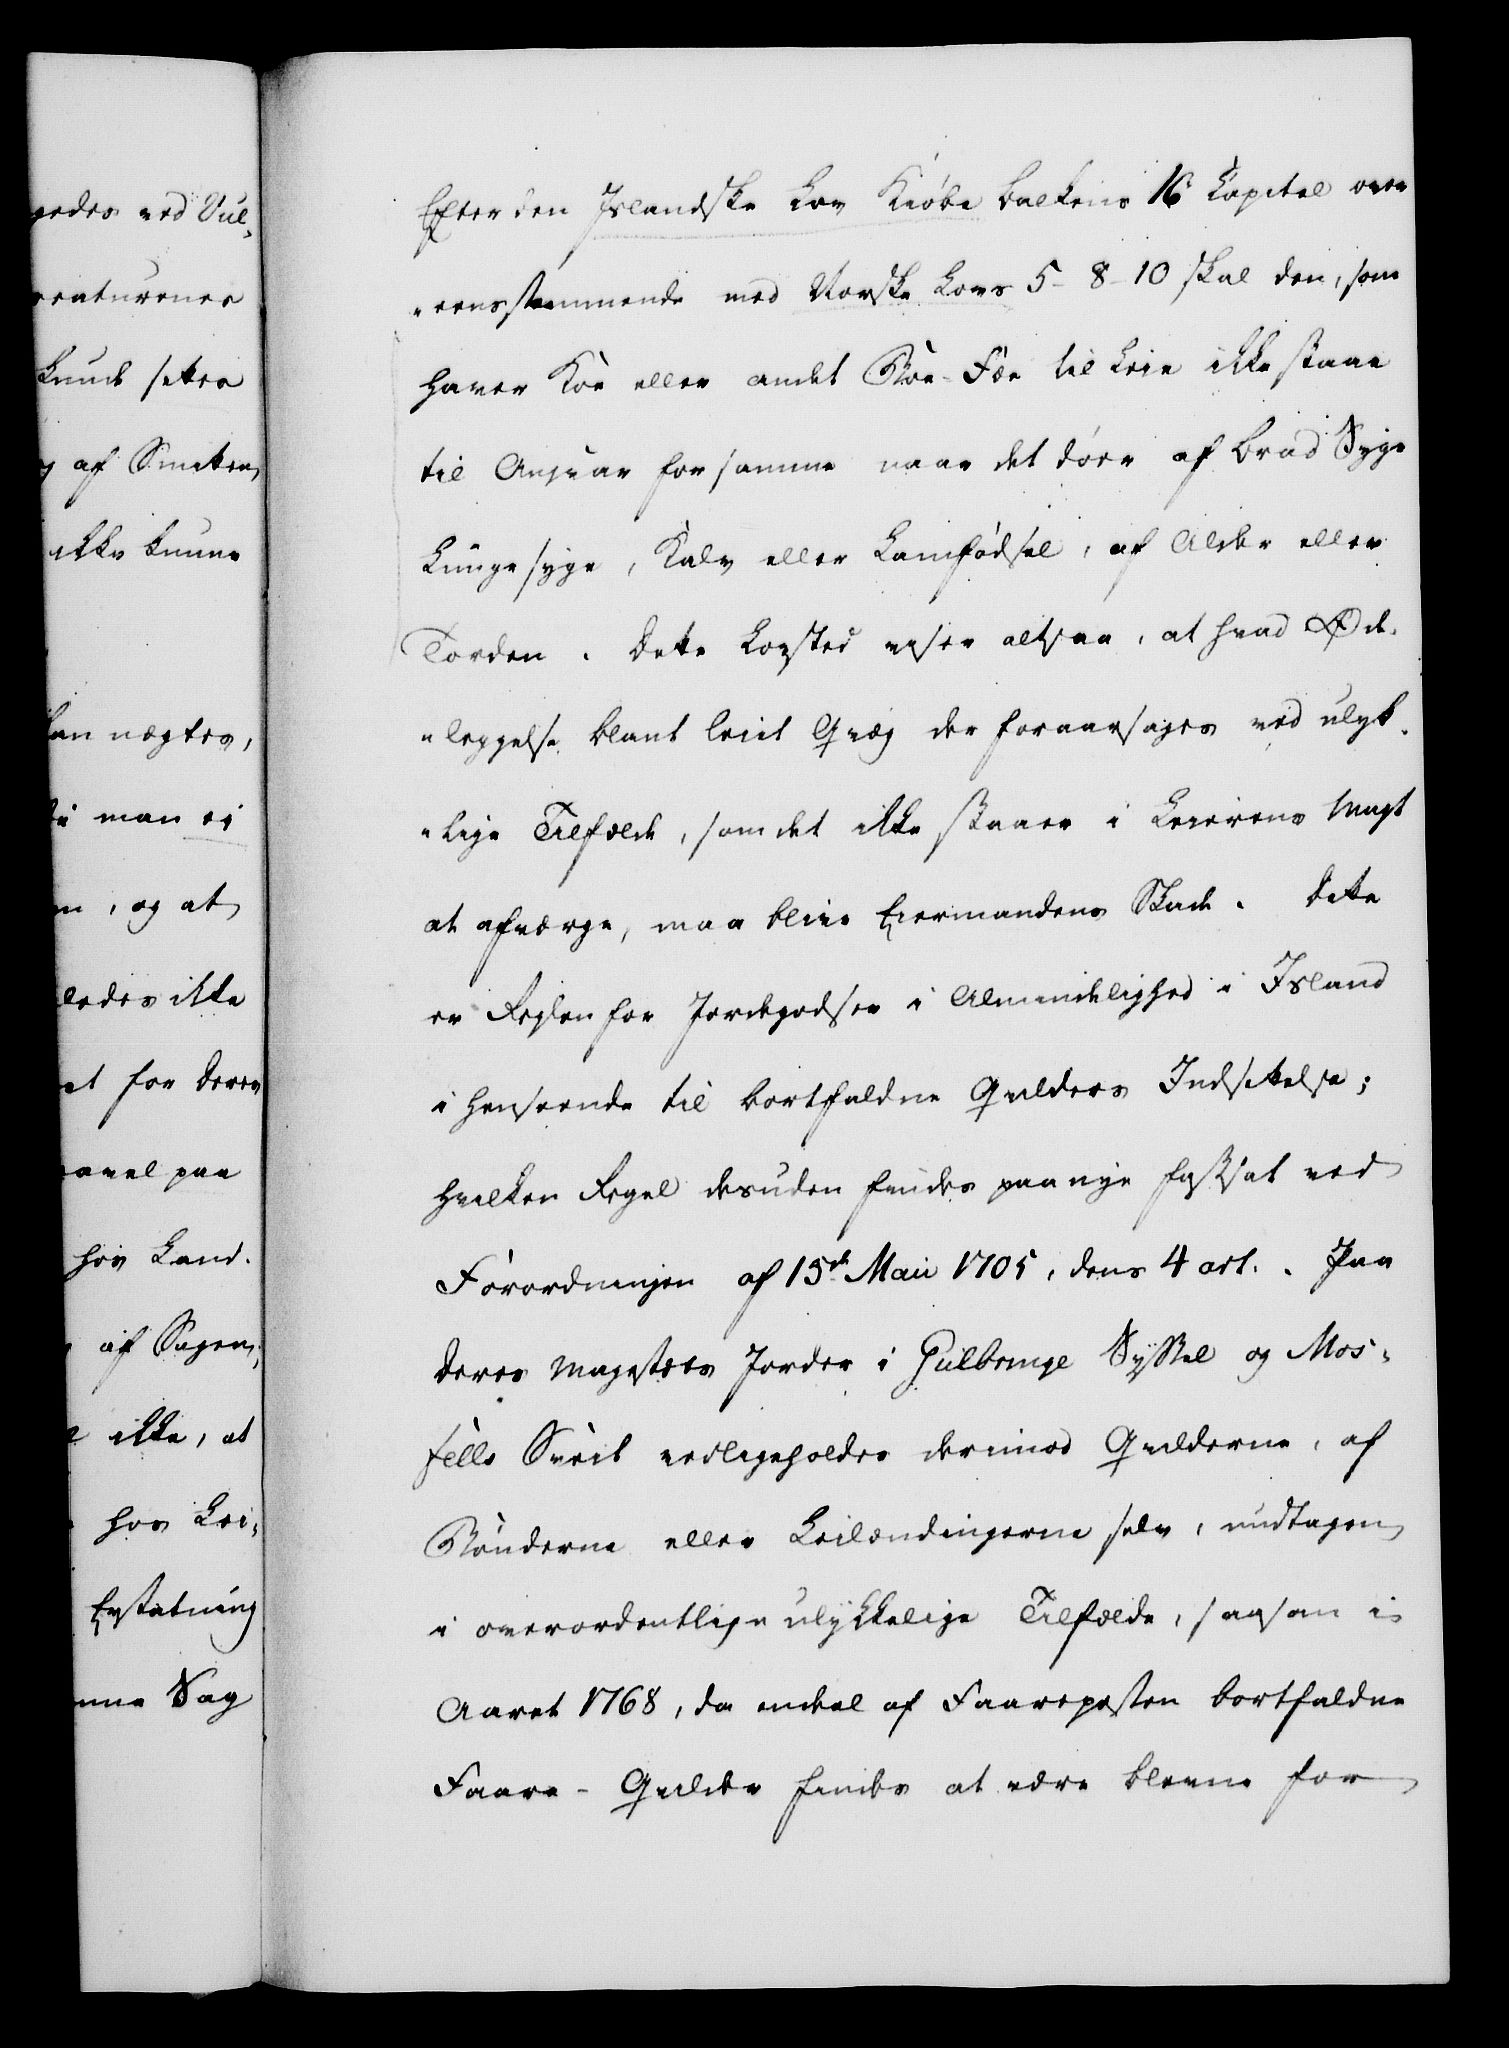 gedes ved Vul-
reaturenes
kunde settes
af Smitten,
ikke kunne
kan nægtes,
man ei
og at
ledes ikke
for deres
paa
hos Land-
af Sagen,
ikke, at
hos Lei-
Erstatning
Sag
Efter den Islandske Lov Kiøbe balkens 16 Capitel over
„eensstemmende med Norske Lovs 5-8-10 skal den, som
haver Køe eller andet Boe-Fæe til Leie ikke staae
til Ansvar for samme naar det døer af brad Syge
Lungesyge, Kalv eller Lamfødsel, af Alder eller
Torden. Dette Lovsted viser altsaa, at hvad Øde-
„leggelse blant leiet Qvæg der foraarsages ved ulyk-
„lige Tilfælde, som det ikke staaer i Leierens Magt
at afværge, maa blive Eiermandens Skade. Dette
er Reglen for Jordegodser i Almindelighed i Island
i henseende til bortfaldne Qvilders Indsettelse;
hvilken Regel desuden findes paa nye fastsat ved
Forordningen af 15de Maii 1705, dens 4 art.. Paa
deres Magestets Jorder i Gulbringe Syssel og Mos-
fells Sveit vedligeholdes derimod Qvilderne, af
Bønderne eller Leilændingerne selv, undtagen
i overordentlige ulykkelige Tilfælde, saasom i
Aaret 1768, da endeel af Faarepesten bortfaldne
Faare-Qvilder findes at være blevne for